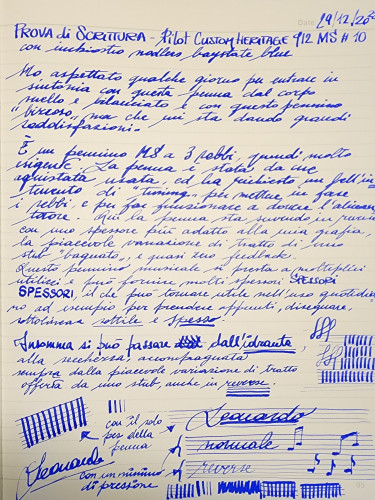 Date 29/12/20
PROVA di SCRITTURA - Pilot CUSTOM HERITAGE 912 MS # 10
con inchiostro noodlers baystate blue
Ho aspettato qualche giorno per entrare in
sintonia con questa penna dal corpo
snello e bilanciato e con questo pennino
"bizzoso" ma che mi sta dando grandi
soddisfazioni.
È un pennino MS a 3 rebbi, quindi molto
esigente. La penna è stata da me
acquistata usata, ed ha richiesto un bell'in
tervento di tuning per mettere in fase
i rebbi e per far funzionare a dovere l'alimen
tatore. Qui la penna sta
con uno spessore più adatto alla mia grafia,
la piacevole variazione di tratto di uno
stub "bagnato", e quasi zero feedback.
Questo pennino musicale si presta a molteplici
utilizzi e può fornire molti spessori SPESSORI
SPESSORI, il che può tornare utile nell'uso quotidia
no ad esempio per prendere appunti, disegnare,
sottolineare sottile e spesso.
Insomma si può passare dall'idrante,
alla secchezza accompagnata
sempre dalla piacevole variazione di tratto
offerta da uno stub, anche in reverse.
con il solo
peso della
penna
Leonardo
normale
reverse
Leonardo
con un minimo
di pressione